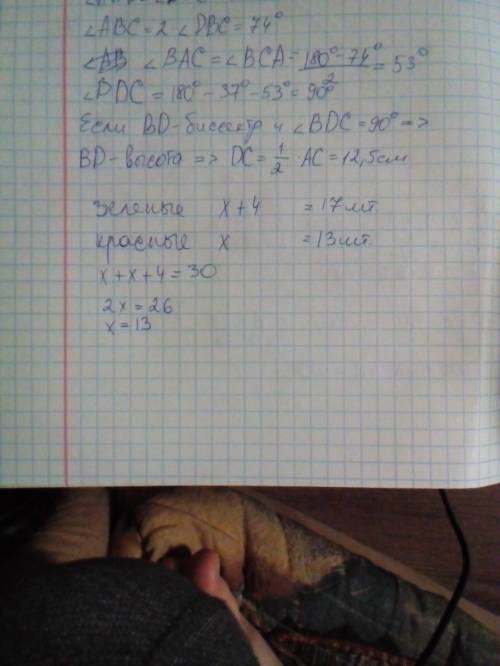 ∠ABC = 2 ∠DBC = 74°
∠BAC = ∠BCA = (180° - 74°)/2 = 53°
∠BDC = 180° - 37° - 53° = 90°
Если BD - биссектр и ∠BDC = 90° =>
BD - высота => DC = 1/2 · AC = 12,5см
зеленые x + 4 = 17 шт.
красные x = 13 шт.
x + x + 4 = 30
2x = 26
x = 13